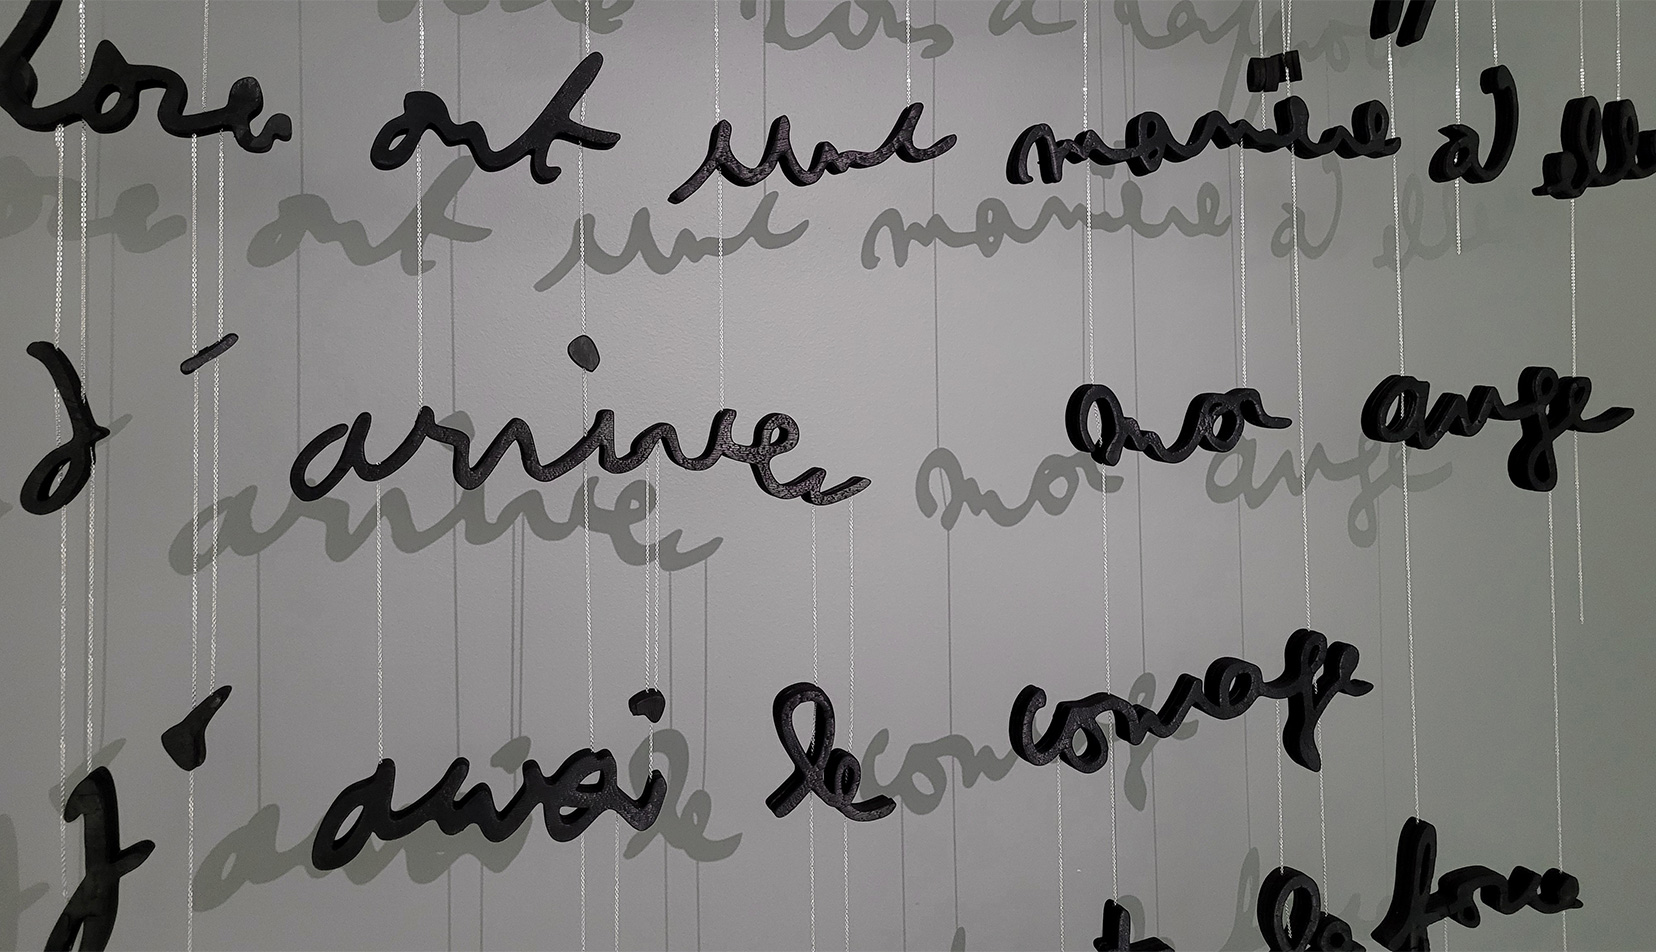 ont une manière à elle
j'arrive mon ange
j'avai le courage
la force